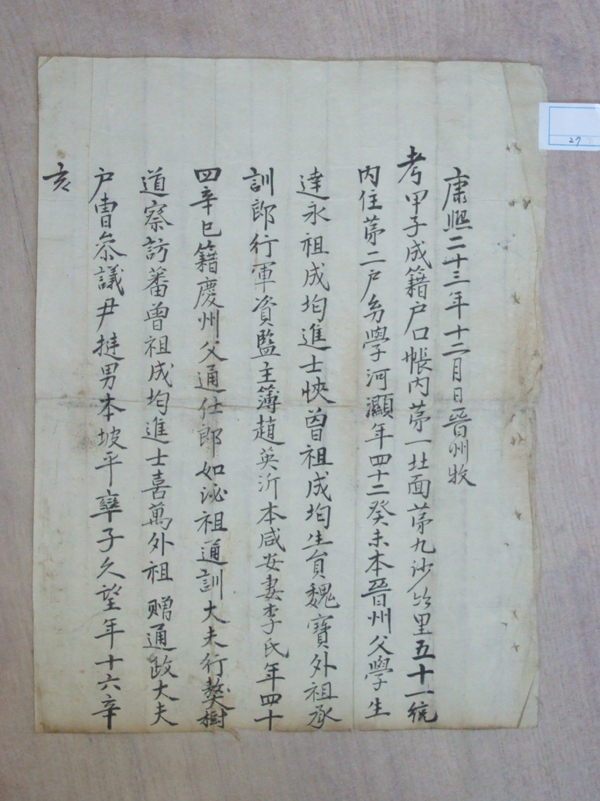 康熙二十三年十二月日晉州牧
考甲子成籍戶口帳內苐一北面苐九沙竹里五十一統
內住苐二戶幼學河灝年四十二癸未本晉州父學生
達永祖成均進士悏曾祖成均生員魏寶外祖承
訓郎行軍資監主簿趙英沂本咸安妻李氏年四十
四辛巳籍慶州父通仕郎如泌祖通訓大夫行獒樹
道察訪蕃曾祖成均進士喜萬外祖贈通政大夫
戶曹叅議尹㨗男本坡平率子久望年十六辛
亥
27